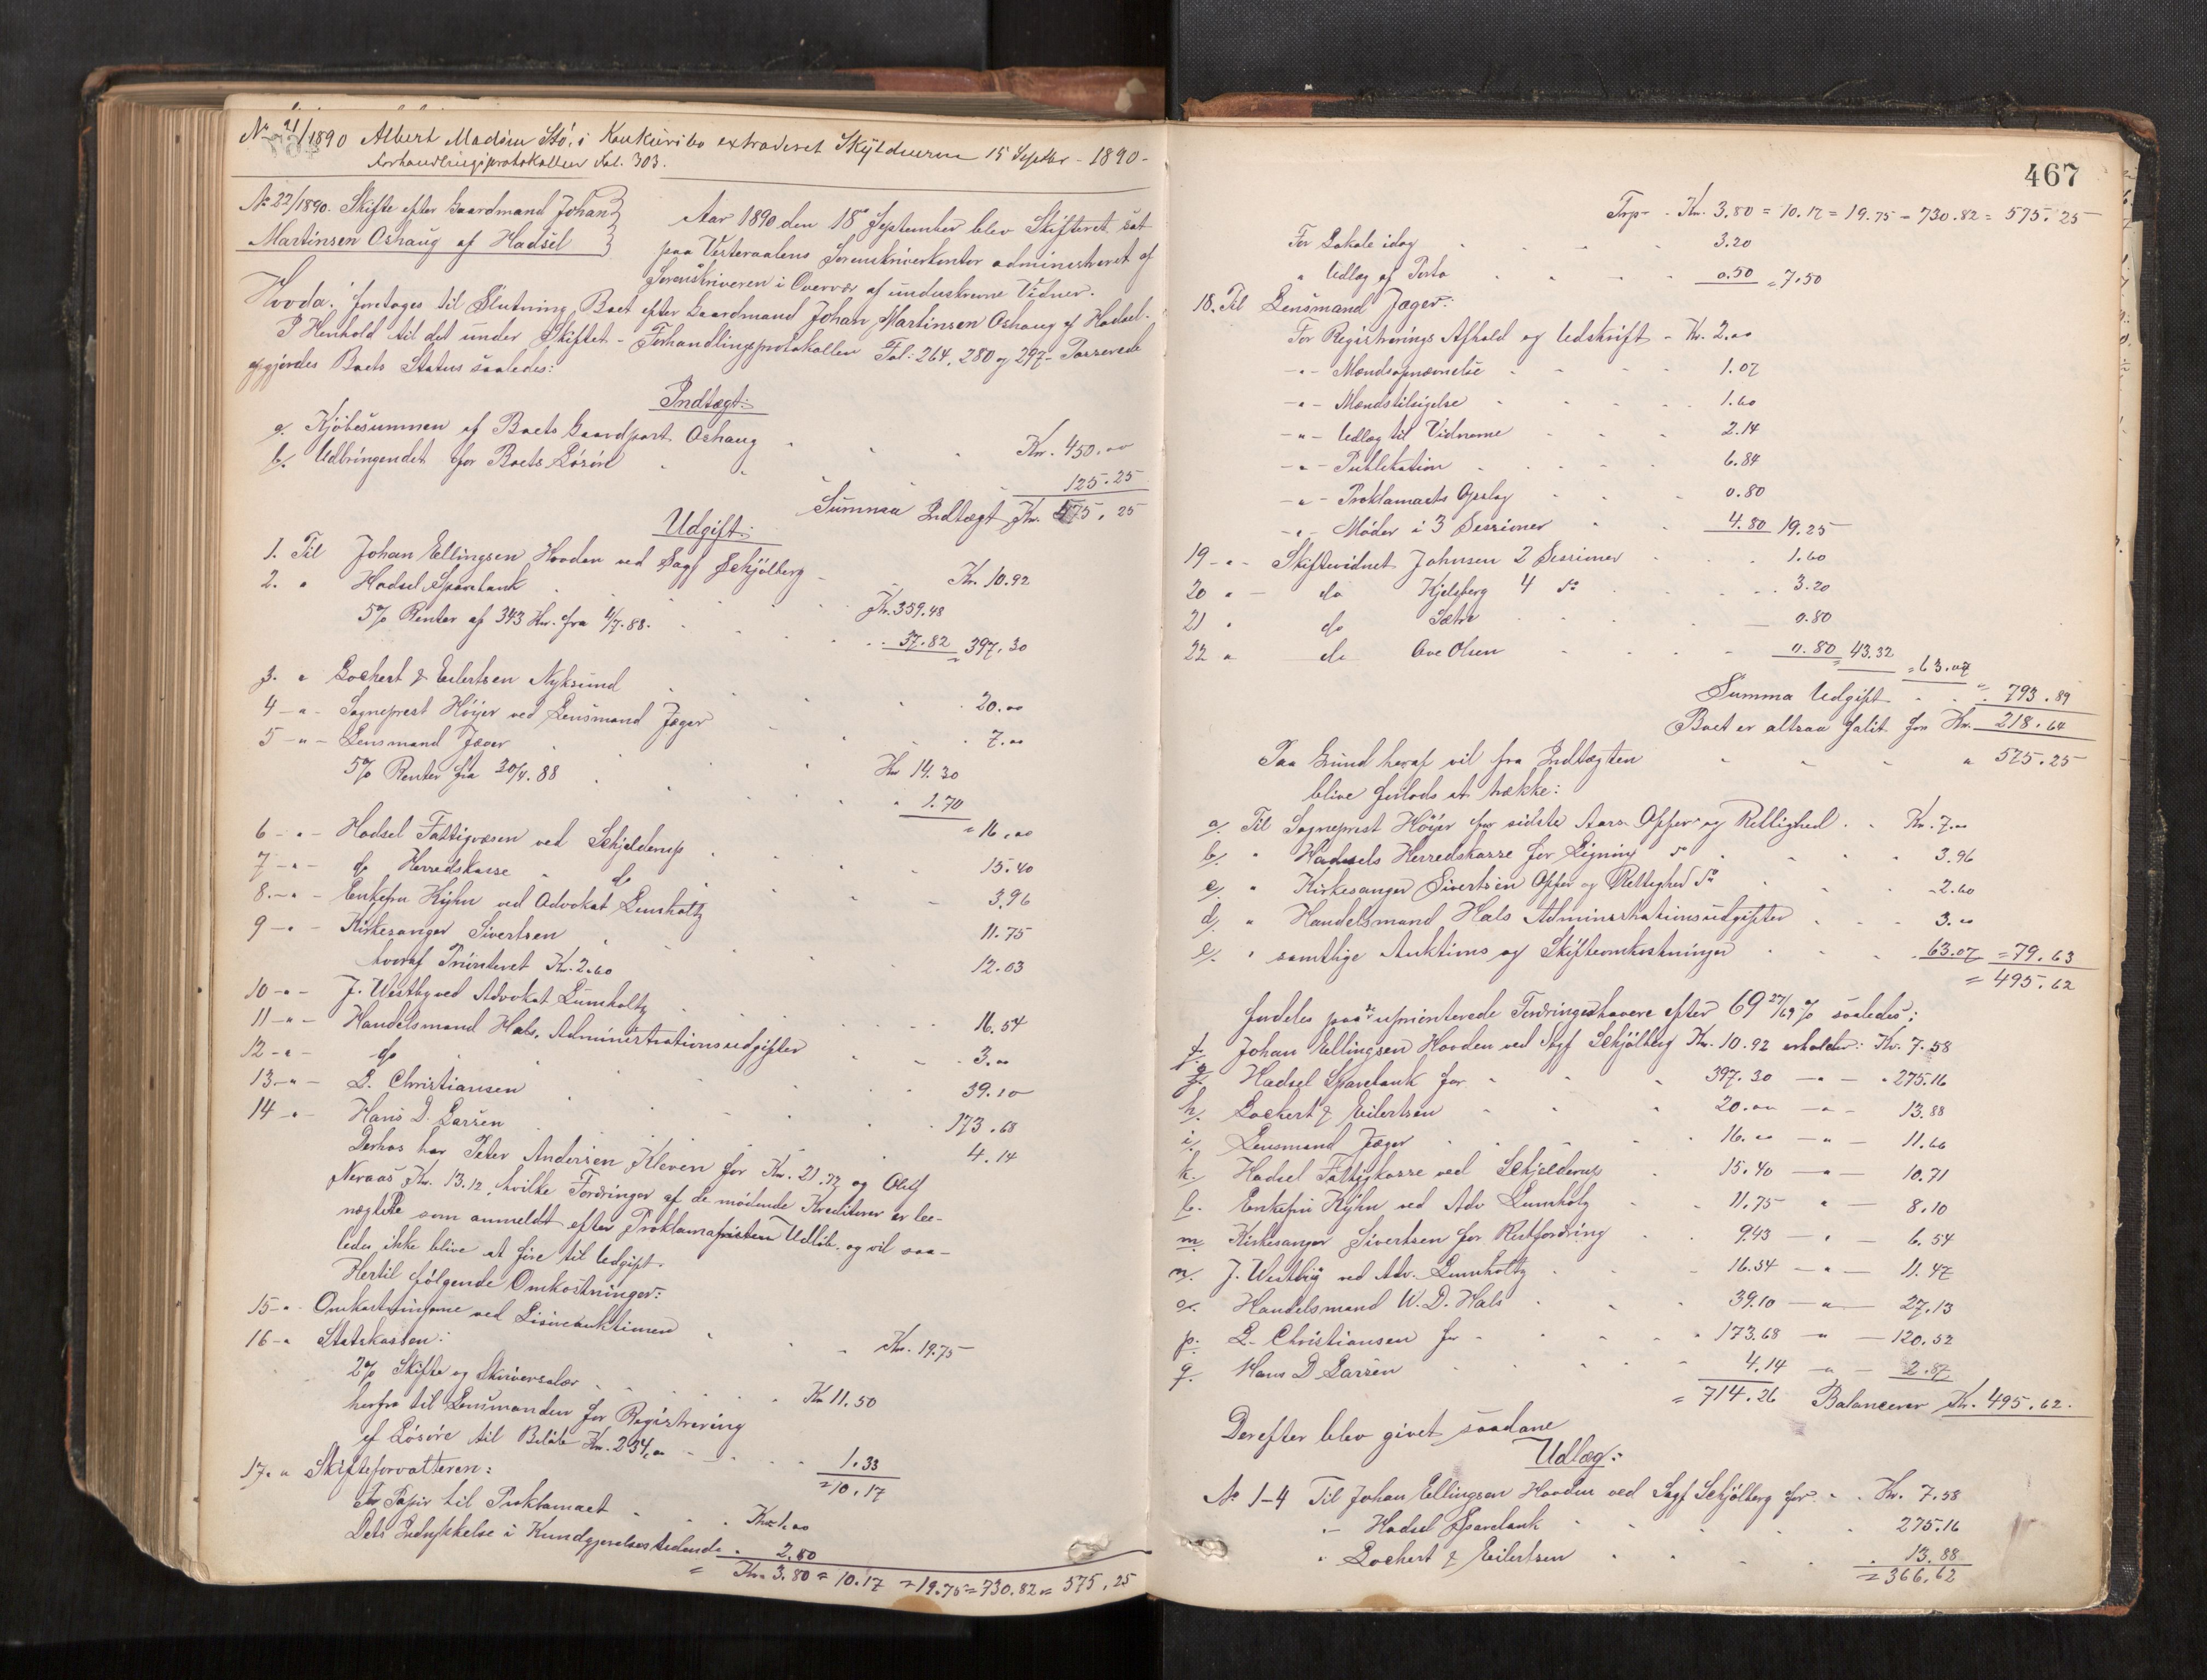 No 21/1890 Albert Madsen Stø, i Konkursbo extraderet Skyldneren 15 Septbr - 1890 -
Forhandlingsprotokollen Fol. 303.
No 22/1890. Skifte efter Gaardmand Johan
Martinsen Oshaug af Hadsel
Aar 1890 den 18de September blev Skifteret sat
paa Vesteraalens Sorenskriverkontor administreret af
Sorenskriveren i Overvær af unduskrevne Vidner.
Hvorda: foretoges til Slutning Boet efter Gaardmand Johan Martinsen Oshaug af Hadsel.
I Henhold til det under Skiftet - Forhandlingsprotokollen Fol: 264, 280 og 297 - Passerede
opgjordes Boets Status saaledes:
Indtægt:
a. Kjöbesummen af Boets Gaardpart Oshaug Kr. 450.00
b. Udbringendet for Boets Løsøre 125.25
Summa Indtægt Kr. 575.25
Udgift:
1. Til Johan Ellingsen Hovden ved Sagf Schjölberg Kr. 10.92
2. " Hadsel Sparebank Kr. 359.48
5% Renter af 343 Kr. fra 4/7.88. 37.82 = 397.30
3. " Lockert & Eilertsen Nyksund 20.00
4 - " - Sogneprest Höyer ved Lensmand Jæger 7.00
5 - " - Lensmand Jæger Kr 14.30
5% Renter fra 30/4.88 " 1.70
= 16.00
6 - " - Hadsel Fattigvæsen ved Schjelderup 15.40
7 - " - do Herredskasse do 3.96
8. - " - Enkefru Kyhn ved Advokat Lumholtz 11.75
9 - " - Kirkesanger Sivertsen 12.03
hvoraf Prioriteret Kr. 2.60
10 - " - J. Westby ved Advokat Lumholtz 16.54
11 - " - Handelsmand Hals, Administrationsudgifter 3.00
12 - " - do 39.10
13. - " - L. Christiansen 173.68
14 - " - Hans D. Larsen 4.14
Derhos har Peter Andersen Kleven for Kr. 21.72 og Oluf
Neraas Kr. 13.12, hvilke Fordringer af de mødende Kreditorer er be-
nægtede som anmeldt efter Proklamafristens Udløb, og vil saa-
ledes ikke blive at före til Udgift.
Hertil følgende Omkostninger:
15 - " Omkostningerne ved Løsøreauktionen Kr. 19.75
16 - " Statskassen:
2% Skifte og Skriversalær Kr 11.50
herfra til Lensmanden for Registrering
af Løsøre til Beløb Kr. 234,00 1.33
= 10.17
17. " Skifteforvalteren:
For Papir til Proklamaet Kr. 1.00
Dets Indrykkelse i Kundgjørelsestidende 2.80
= Kr. 3.80 = 10.17 = 19.75 = 730.82 = 575.25
467
Trsp - Kr. 3.80 = 10.17 = 19.75 - 730.82 = 575.25
For Lokale idag 3.20
" Udlæg af Porto 0.50 = 7.50
18. Til Lensmand Jæger:
For Registrerings Afhold og Udskrift - Kr. 2.00
- " - Mandsopnævnelse 1.07
- " - Mandstilsigelse 1.60
- " - Udlæg til Vidnerne 2.14
- " - Publikation 6.84
- " - Proklamaets Opslag 0.80
- " - Møder i 3 Sessioner 4.80 19.25
19 - " - Skiftevidnet Johnsen 2 Sessioner 1.60
20 " - do Kjelsberg 4 do 3.20
21 " do Sætre 0.80
22 " do Ove Olsen 0.80 43.32
= 63.07
Summa Udgift = 793.89
Boet er altsaa falit for Kr. 218.64
Paa Grund heraf vil fra Indtægten " 575.25
blive forlods at trække:
a/. Til Sogneprest Höyer for sidste Aars Offer og Rettighed Kr. 7.00
b/. " Hadsels Herredskasse for Ligning do 3.96
c/. " Kirkesanger Sivertsen Offer og Rettighed do 2.60
d/. " Handelsmand Hals Administrationsudgifter 3.00
e/. " samtlige Auktions og Skifteomkostninger 63.07 = 79.63
= 495.62
fordeles paa de uprioriterede Fordringshavere efter 69 27/69 % saaledes:
f. Johan Ellingsen Hovden ved Sagf Schjölberg Kr. 10.92 erholder: Kr. 7.58
g. Hadsel Sparebank for 397.30 - " - 275.16
h. Lockert & Eilertsen 20.00 - " - 13.88
i. Lensmand Jæger 16.00 - " - 11.66
k. Hadsel Fattigkasse ved Schjelderup 15.40 - " - 10.71
l. Enkefru Kyhn ved Adv Lumholtz 11.75 " - 8.10
m. Kirkesanger Sivertsen for Restfordring 9.43 - " - 6.54
n. J. Westby ved Adv. Lumholtz 16.54 - " - 11.47
o. Handelsmand W. D. Hals 39.10 - " - 27.13
p. L. Christiansen for 173.68 " - 120.52
q. Hans D Larsen 4.14 - " - 2.87
= 714.26 Balancerer Kr. 495.62.
Derefter blev givet saadane
Udlæg:
No 1-4 Til Johan Ellingsen Hovden ved Sagf Schjölberg for Kr. 7.58
" - Hadsel Sparebank 275.16
" Lockert & Eilertsen 13.88
= 366.62